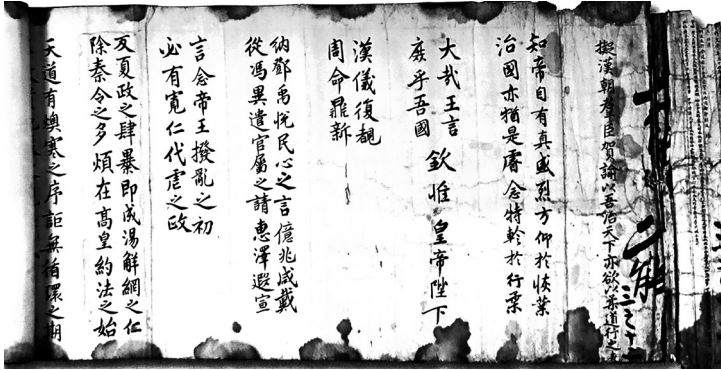 二
能
擬漢朝羣臣賀諭以吾治天下亦欲以柔道行之
知帝自有真盛烈方仰於恢業
治國亦猶是睿念特軫於行柔
大哉王言
庶乎吾國
欽惟 皇帝陛下
漢儀復覩
周命鼎新
納鄧禹悅民心之言億兆咸戴
從馮異遣官屬之請惠澤遐宣
言念帝王撥亂之初
必有寬仁代虐之政
反夏政之肆暴即成湯解網之仁
除秦令之多煩在高皇約法之始
天道有燠寒之序詎無循環之期